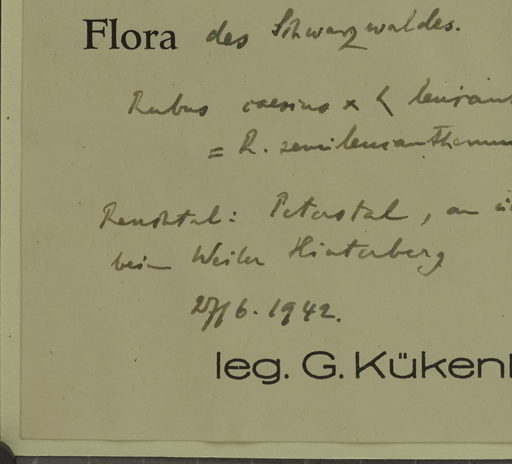 Flora des Schwarzwaldes.
Rubus caesius x
= R. semileucanthemum
Renchtal: Peterstal, an
beim Weiler Hinterberg
27/6. 1942.
leg. G.Küken